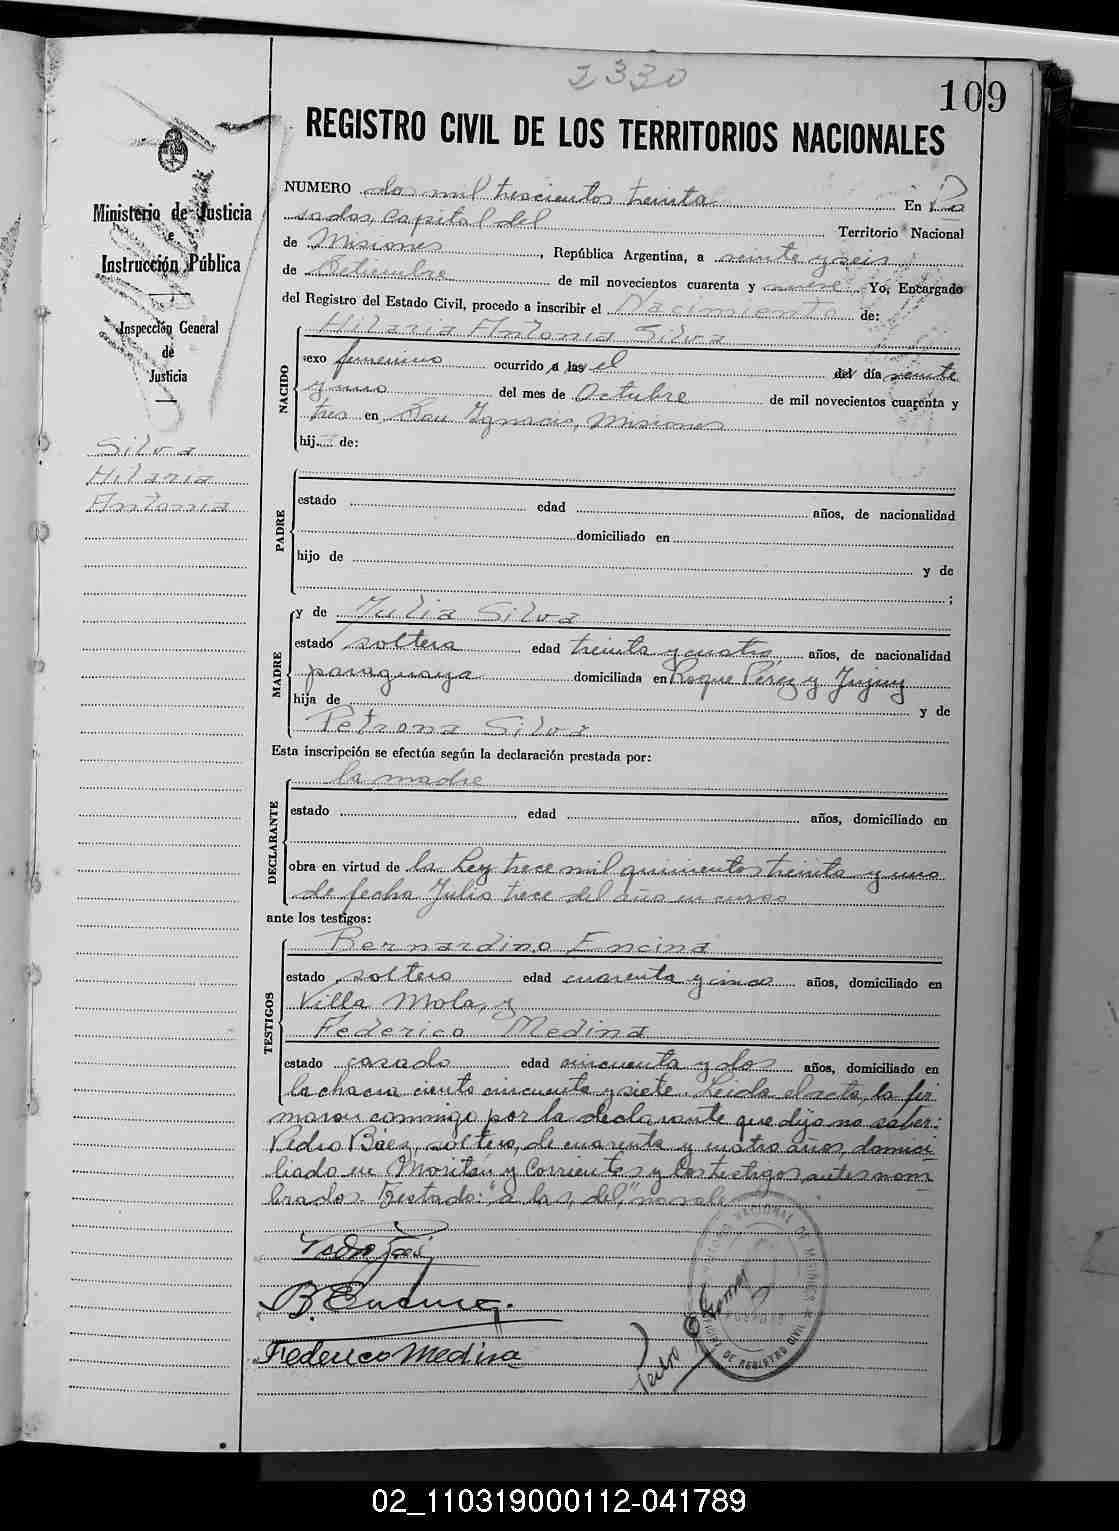 2330
109
REGISTRO CIVIL DE LOS TERRITORIOS NACIONALES
Ministerio de Justicia
e
Instrucción Pública
Inspección General
de
Justicia
Silva
Hilaria
Antonia
NUMERO dos mil trescientos treinta En Po
sadas, Capital del Territorio Nacional
de Misiones, República Argentina, a veinte y seis
de Setiembre de mil novecientos cuarenta y nueve Yo, Encargado
del Registro del Estado Civil, procedo a inscribir el Nacimiento de:
NACIDO
Hilaria Antonia Silva
sexo femenino ocurrido a las el del día veinte
y uno del mes de Octubre de mil novecientos cuarenta y
tres en San Ignacio, Misiones
hij de:
PADRE
estado edad años, de nacionalidad
domiciliado en
hijo de y de
;
MADRE
y de Julia Silva
estado soltera edad treinta y cuatro años, de nacionalidad
paraguaya domiciliada en Roque Pérez y Jujuy
hija de y de
Petrona Silva
Esta inscripción se efectúa según la declaración prestada por:
DECLARANTE
la madre
estado edad años, domiciliado en
obra en virtud de la Ley trece mil quinientos treinta y uno
de fecha Julio trece del año en curso
ante los testigos:
TESTIGOS
Bernardino Encina
estado soltero edad cuarenta y cinco años, domiciliado en
Villa Mola, y
Federico Medina
estado casado edad cincuenta y dos años, domiciliado en
la chacra ciento cincuenta y siete. Leída el acta, la fir
maron conmigo por la declarante que dijo no saber:
Pedro Báez, soltero, de cuarenta y cuatro años, domici-
liado en Moritán y Corrientes y los testigos antes nom-
brados. Testado: "a las, del," no vale
B. Encina.
Federico Medina
Pedro
OFICINA DE REGISTRO CIVIL
02_110319000112-041789